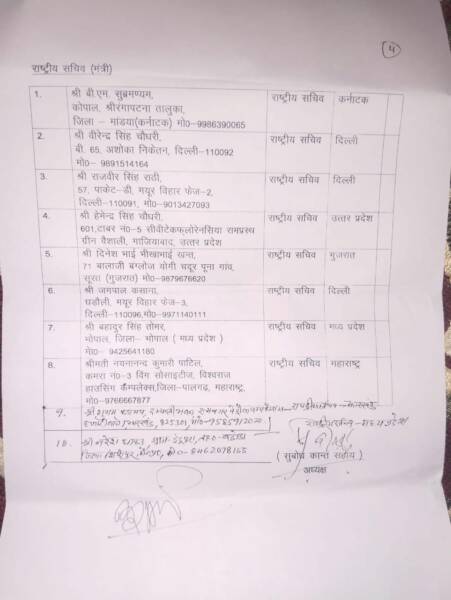 4
राष्ट्रीय सचिव (मंत्री)
1. श्री बी.एम. सुब्रमण्यम, राष्ट्रीय सचिव कर्नाटक
कोपाल, श्रीरंगापटना तालुका,
जिला – मांडया(कर्नाटक) मो0–9986390065
2. श्री वीरेन्द्र सिंह चौधरी, राष्ट्रीय सचिव दिल्ली
बी. 65, अशोका निकेतन, दिल्ली–110092
मो0– 9891514164
3. श्री राजवीर सिंह राठी, राष्ट्रीय सचिव दिल्ली
57, पाकेट–डी, मयूर विहार फेज–2,
दिल्ली–110091, मो0–9013427093
4. श्री हेमेन्द्र सिंह चौधरी, राष्ट्रीय सचिव उत्तर प्रदेश
601,टाबर नं0–5 सीवीटेकफ्लोरेनसिया रामप्रस्थ
ग्रीन वैशाली, गाजियाबाद, उत्तर प्रदेश
5. श्री दिनेश भाई भीखाभाई खन्ता, राष्ट्रीय सचिव गुजरात
71 बालाजी बंग्लोज योगी चदूर पूना गांव,
सूरत (गुजरात) मो0–9879676620
6. श्री जगपाल कसाना, राष्ट्रीय सचिव दिल्ली
घडौली, मयूर विहार फेज–3,
दिल्ली–110096,मो0–9971140111
7. श्री बहादुर सिंह तोमर, राष्ट्रीय सचिव मध्य प्रदेश
भोपाल, जिला– भोपाल ( मध्य प्रदेश )
मो0– 9425641180
8. श्रीमती नयनानन्द कुमारी पाटिल, राष्ट्रीय सचिव महाराष्ट्र
कमरा नं0–3 विंग सोसाइटीज, विश्वराज
हाउसिंग कैम्पलेक्स,जिला–पालगढ़, महाराष्ट्र.
मो0–9766667877
9. श्री
825301, मो0–
10. श्री नरेश
मो0–8462078165
( सुबोध कान्त सहाय )
अध्यक्ष